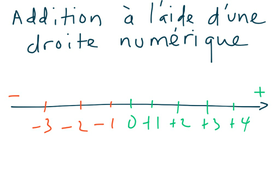 Addition à l'aide d'une
droite numérique
− +
−3 −2 −1 0 +1 +2 +3 +4